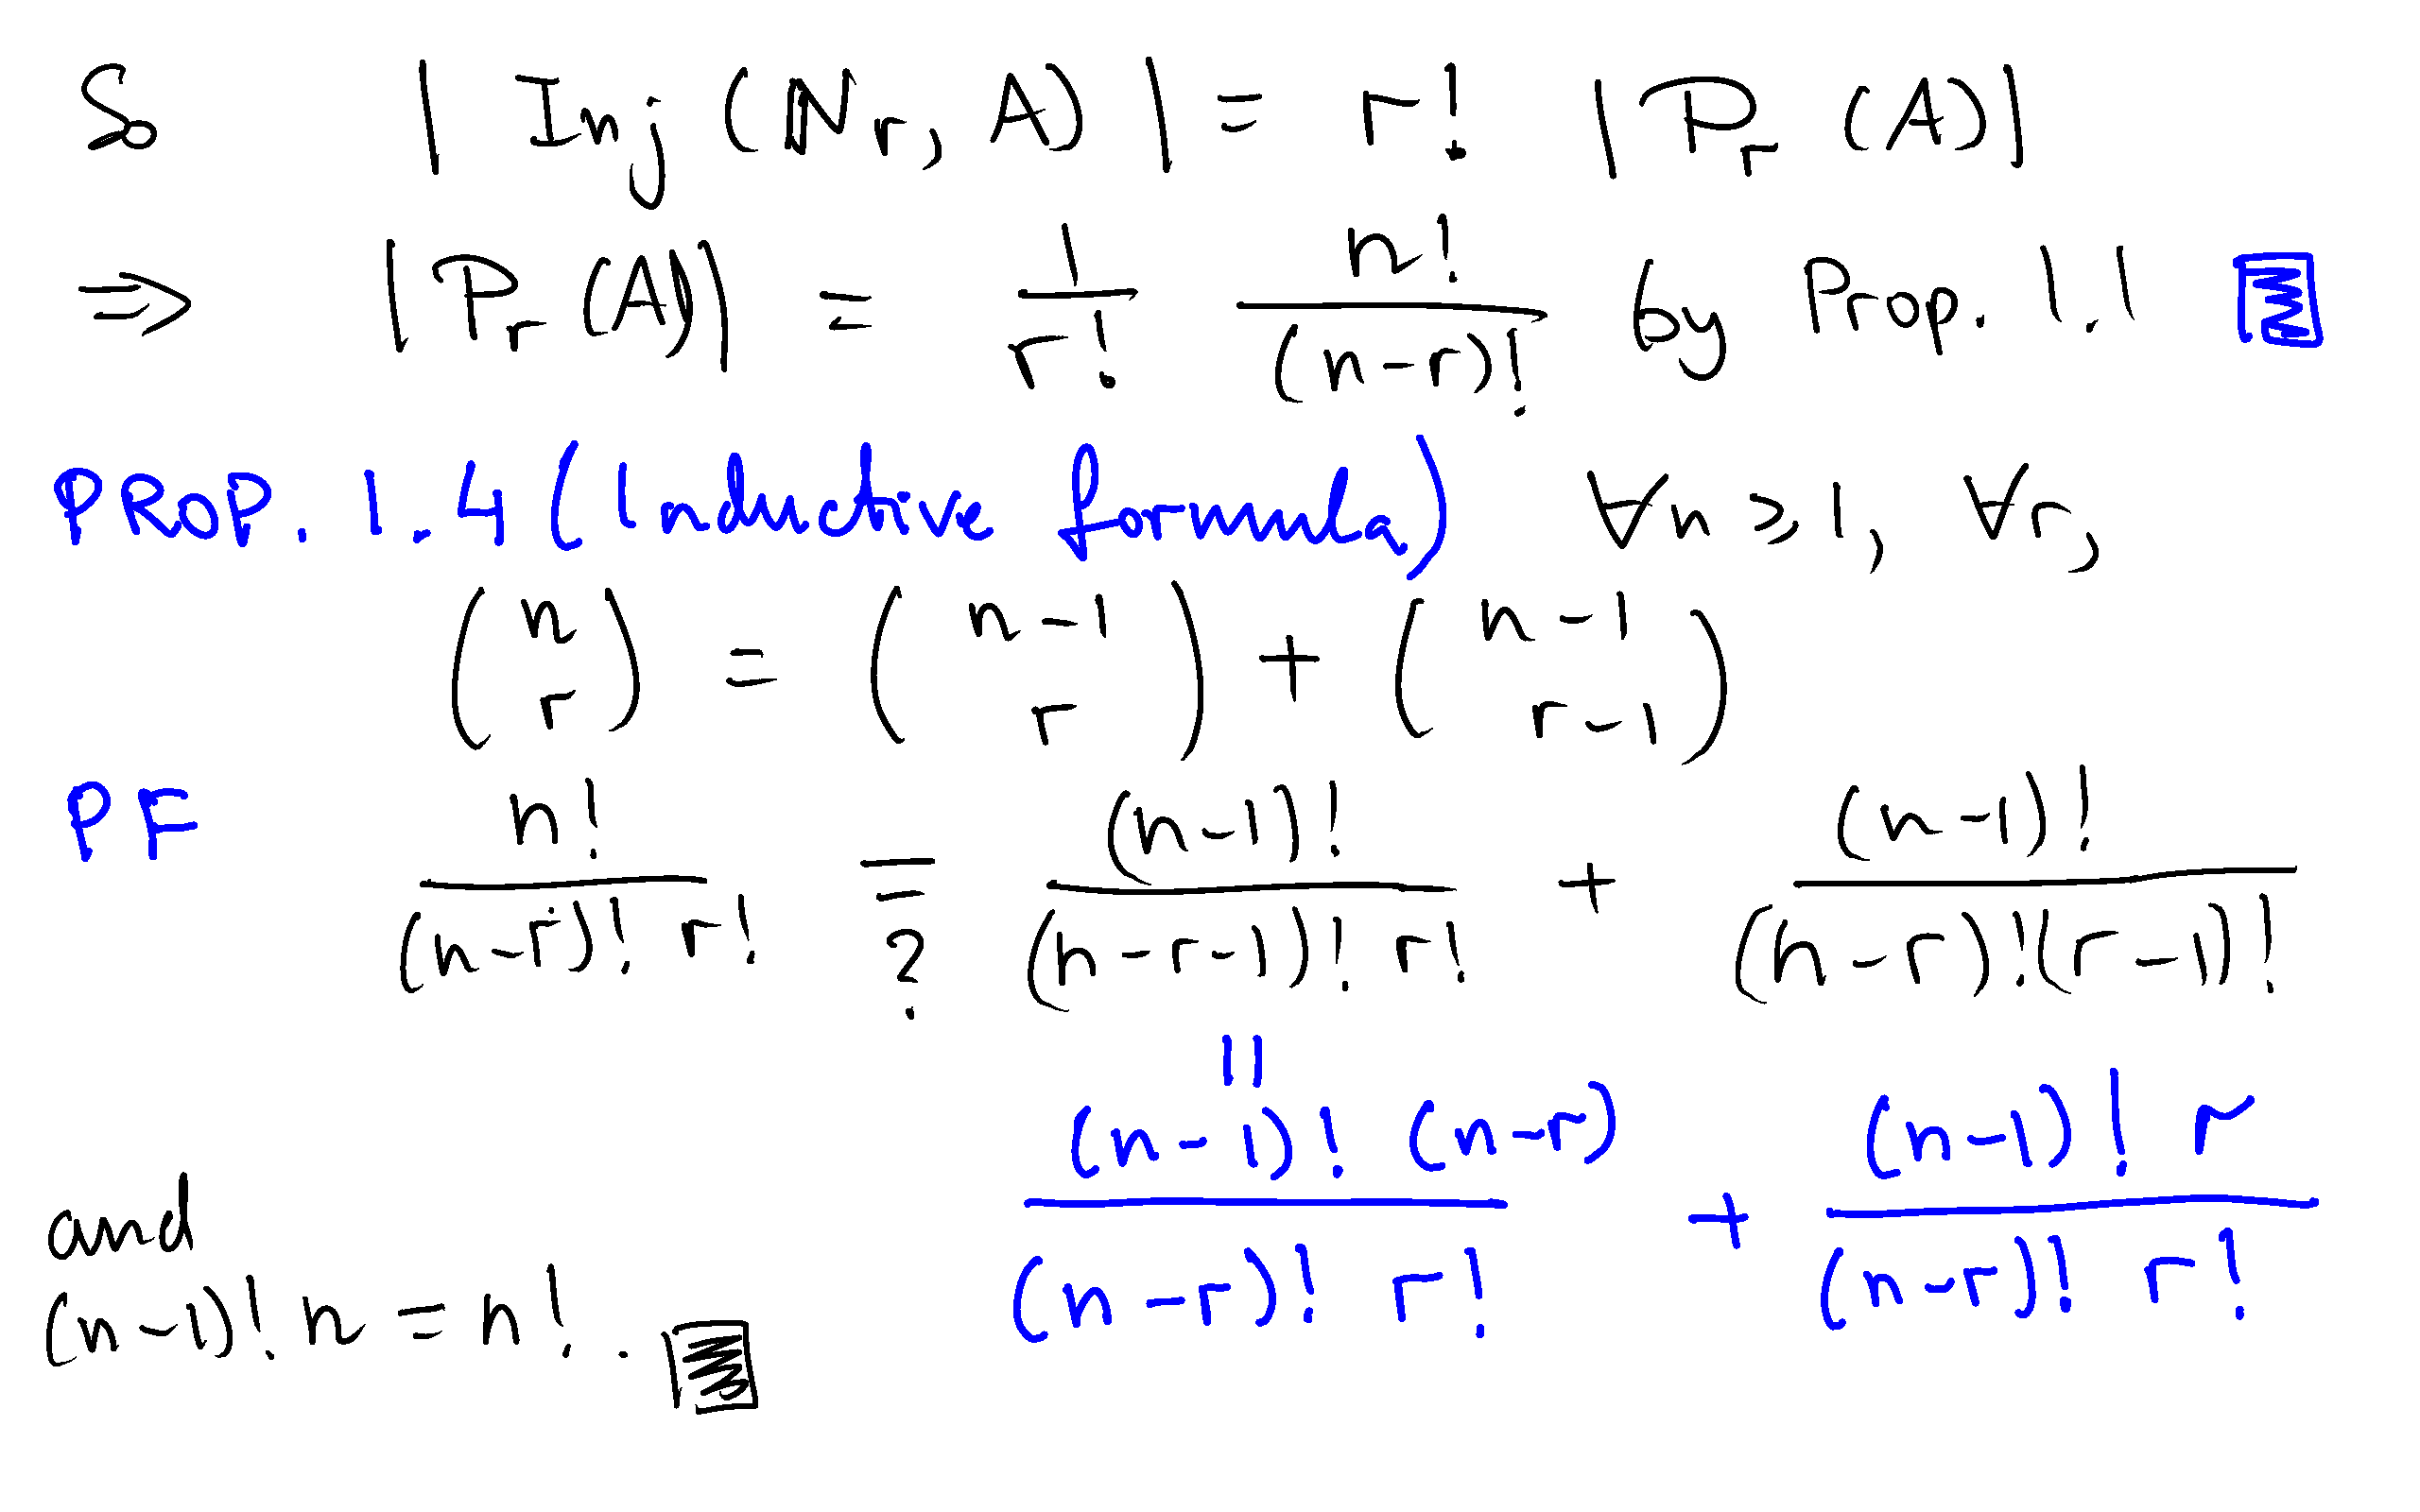 So |Inj(ℕ_r, A)| = r! |P_r(A)|
⇒ |P_r(A)| = \frac{1}{r!} \frac{n!}{(n-r)!} by Prop. 1.1
PROP. 1.4 (Inductive formula) ∀n ⩾ 1, ∀r,
\binom{n}{r} = \binom{n-1}{r} + \binom{n-1}{r-1}
PF \frac{n!}{(n-r)! r!} =? \frac{(n-1)!}{(n-r-1)! r!} + \frac{(n-1)!}{(n-r)!(r-1)!}
||
\frac{(n-1)! (n-r)}{(n-r)! r!} + \frac{(n-1)! r}{(n-r)! r!}
and
(n-1)! n = n!.